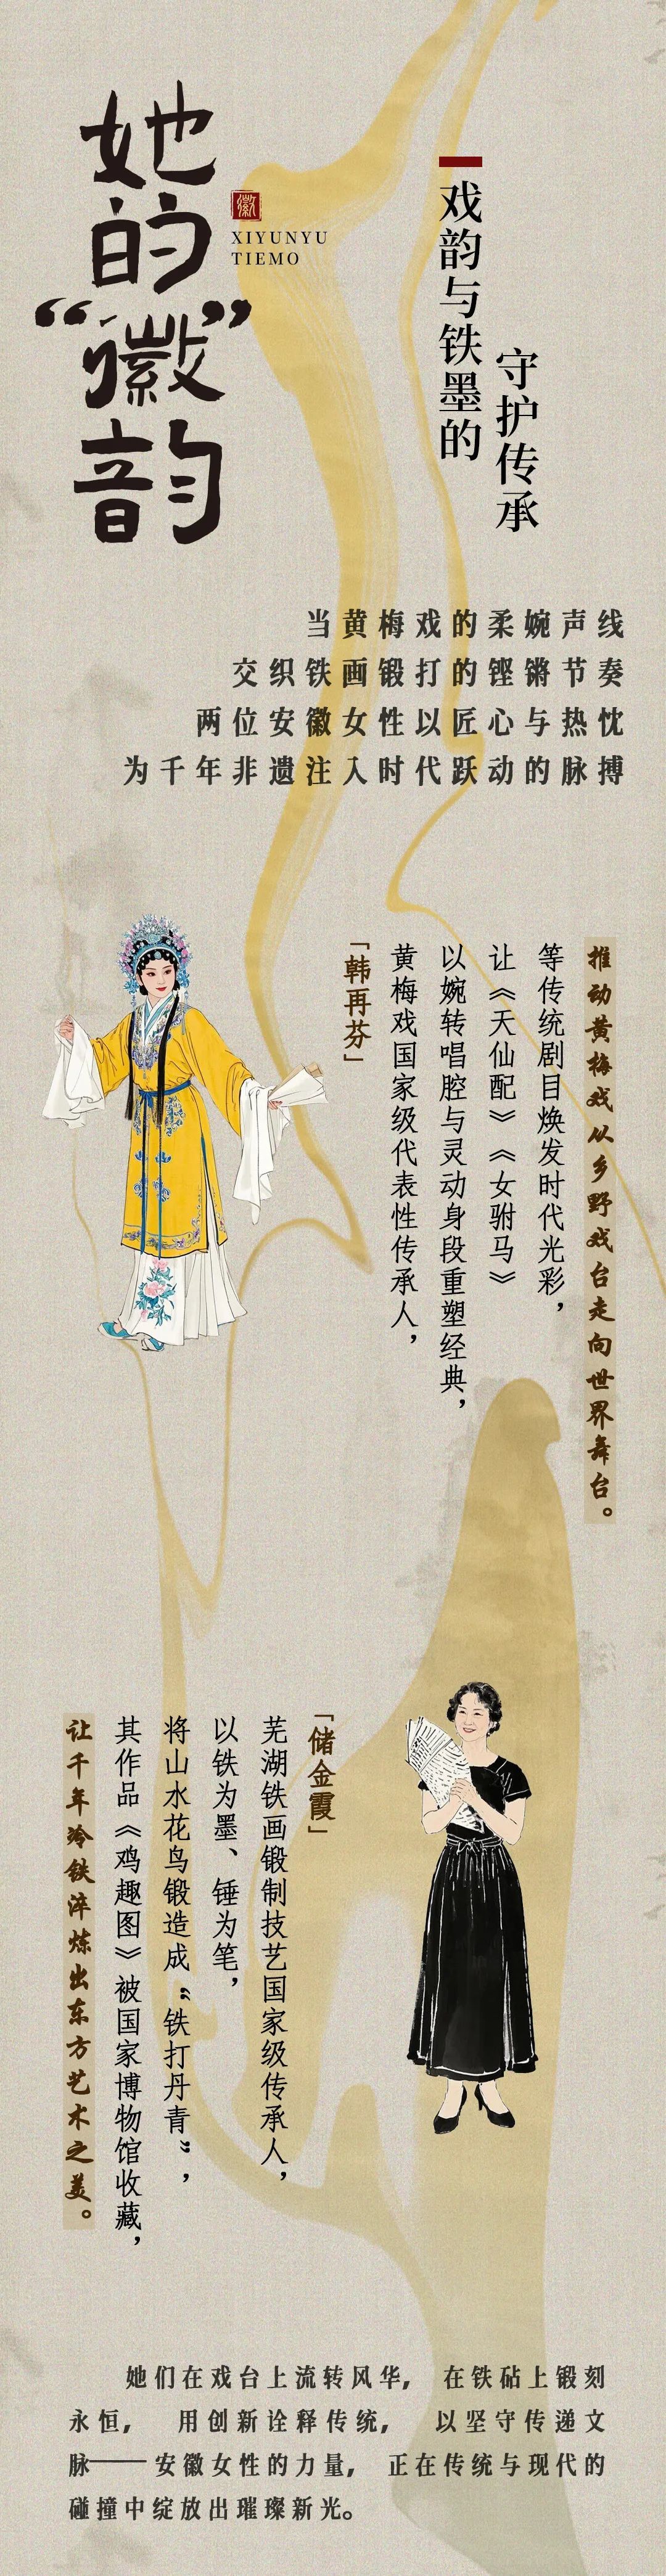 她的
“徽”韵
徽
XIYUNYU
TIEMO
戏韵与铁墨的
守护传承
当黄梅戏的柔婉声线
交织铁画锻打的铿锵节奏
两位安徽女性以匠心与热忱
为千年非遗注入时代跃动的脉搏
「韩再芬」
黄梅戏国家级代表性传承人，
以婉转唱腔与灵动身段重塑经典，
让《天仙配》《女驸马》
等传统剧目焕发时代光彩，
推动黄梅戏从乡野戏台走向世界舞台。
「储金霞」
芜湖铁画锻制技艺国家级传承人，
以铁为墨、锤为笔，
将山水花鸟锻造成“铁打丹青”，
其作品《鸡趣图》被国家博物馆收藏，
让千年冷铁淬炼出东方艺术之美。
她们在戏台上流转风华，在铁砧上锻刻
永恒，用创新诠释传统，以坚守传递文
脉——安徽女性的力量，正在传统与现代的
碰撞中绽放出璀璨新光。